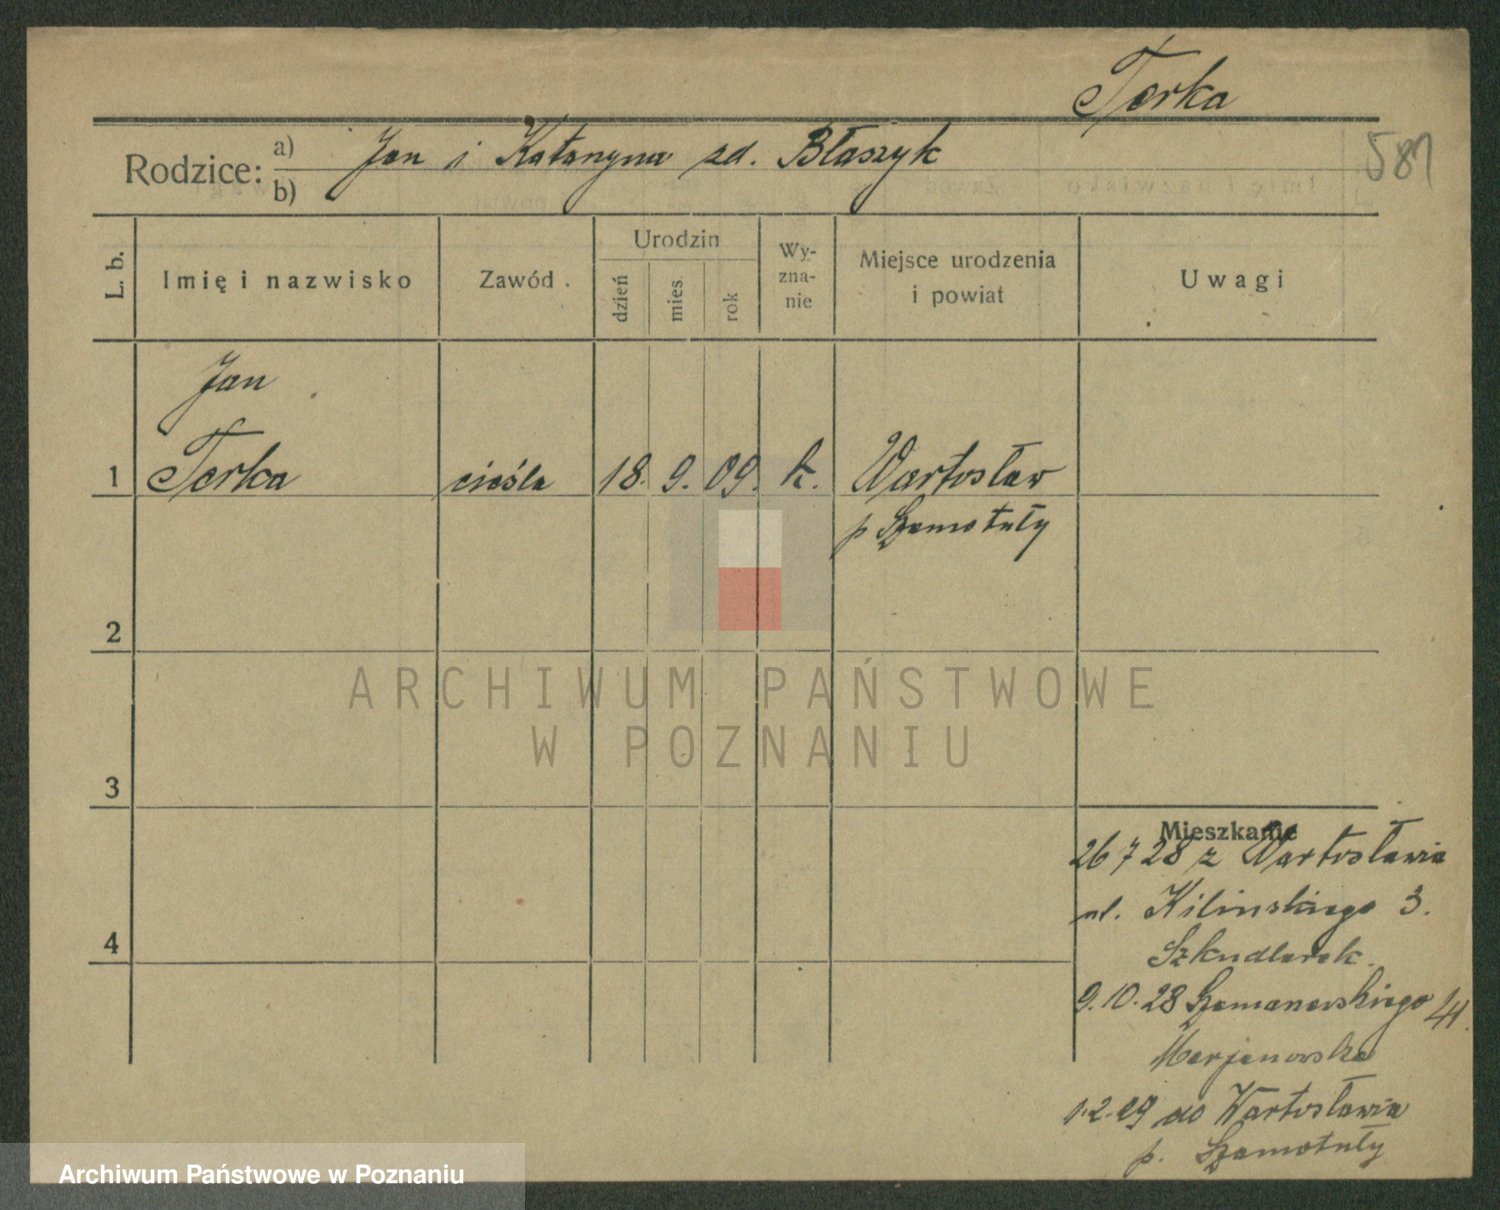 Terka
587
Rodzice: a) Jan i Katarzyna zd. Błaszyk
b)
L. b. Imię i nazwisko Zawód Urodzin dzień mies. rok Wyznanie Miejsce urodzenia i powiat Uwagi
Jan
1 Terka cieśla 18. 9. 09. k. Wartosław
p Szamotuły
2
ARCHIWUM PAŃSTWOWE
W POZNANIU
3
Mieszkanie
26 7 28 z Wartosławia
ul. Kilinskiego 3.
Szkudlarek.
4
9.10.28 Szamarzewskiego
Marjanowska
1.2.29 do Wartosławia
p. Szamotuły
Archiwum Państwowe w Poznaniu